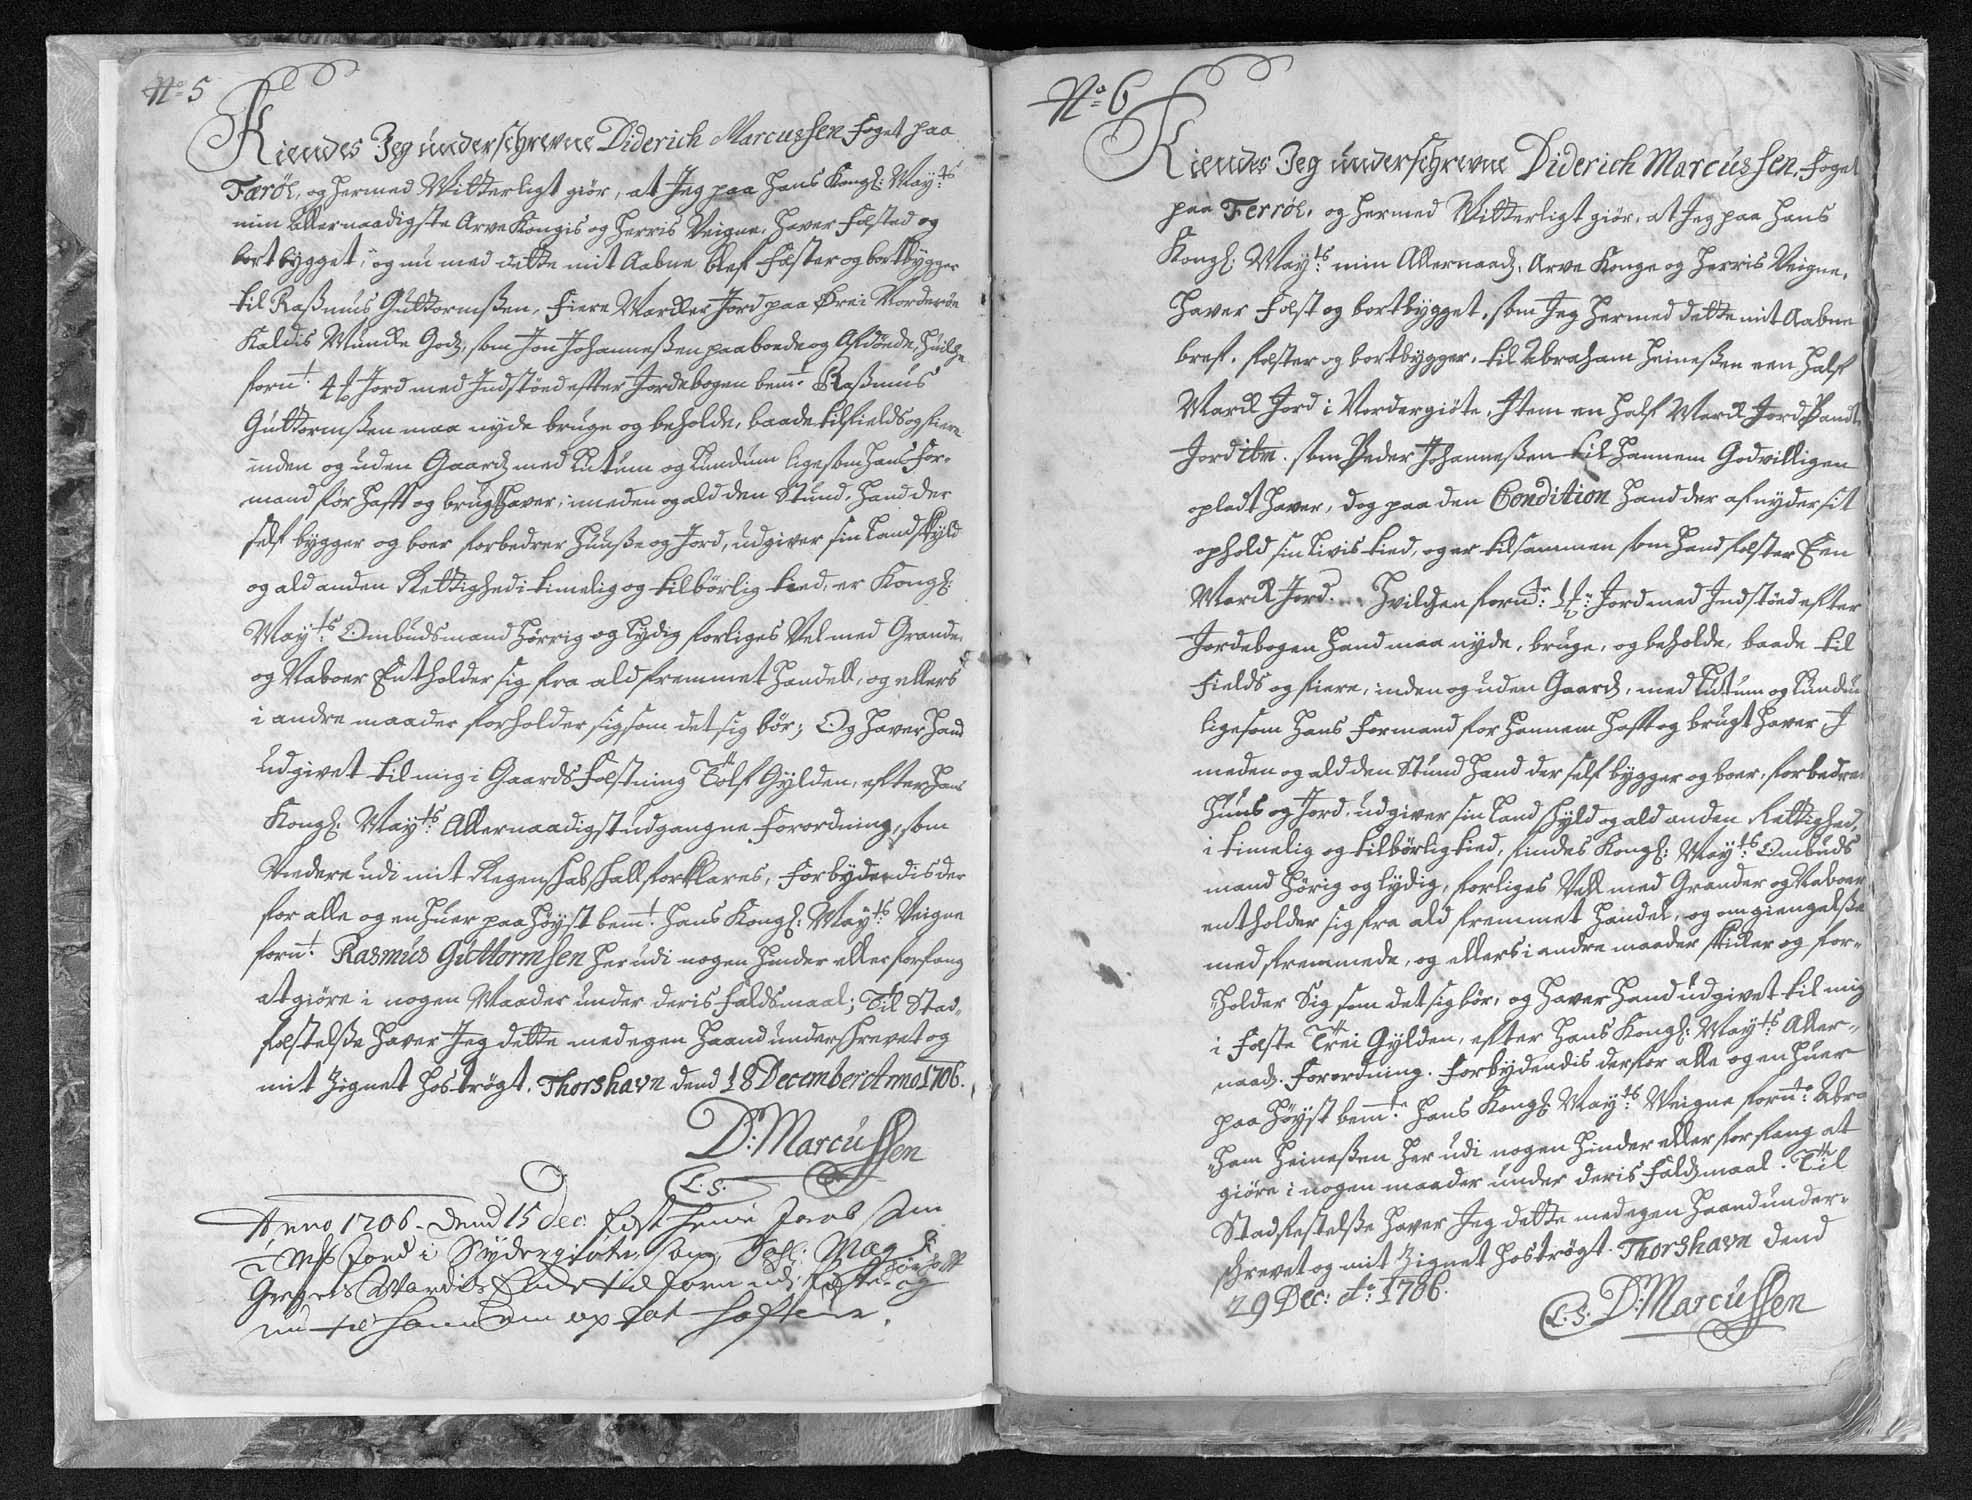 No 5
Kiendes Jeg underschrevne Diderich Marcussen Foget paa
Færöe, og hermed Witterligt giör, at Jeg paa Hans Kongl: Mayts
min Allernaadigste Arve Kongis og Herris Veigne, haver Fæsted og
bort bygget, og nu med dette mit Aabne bref Fæster og bortbygger
til Rasmus Guttormsen, Fiere Marker Jord paa Örei Norderöe
Kaldis Munke Godz, som Jon Johannessen paaboede og Afdöede, Huilke
fornt. 4 Jord med Indstöed efter Jordebogen bemt. Rasmus
Guttormsen maa nyde bruge og beholde, baade til fields og fiere
inden og uden Gaardz med Lutum og Lundum ligesom hans For-
mand för hafft og brugt haver, imeden og ald den Stund, hand der
self bygger og boer forbedrer Huusse og Jord, udgiver sin Landskyld
og ald anden Rettighed i timelig og tilbörlig tied, er Kongl:
Mayts Ombudsmand hörrig og Lydig forliges Vel med Grander
og Naboer Entholder sig fra ald fremmet Handell, og ellers
i andre maader forholder sig som det sig bör; Og haver Hand
udgivet til mig i Gaards Fæstning Tolf Gylden, efter Hans
Kongl: Mayts Allernaadigst udgangne Forordning, som
Viedere udi mit Regenschab schall forklares, Forbydendis der
for alle og en huer paa Höyst bemt. Hans Kongl: Mayts Veigne
fornt. Rasmus Guttormsen her udi nogen hinder eller forfang
at giöre i nogen Maader under deris Faldsmaal; Til Stad-
fæstelsse haver Jeg dette med egen Haand underschrevet og
mit Zignet hos trögt. Thorshavn dend 18 December Anno 1706.
D: Marcussen
L: S:
Anno 1706. Dend 15 dec: fæst
Jord i Sydergiöte, som
til Hannem op lat haftver.
No 6
Kiendes Jeg underschrevne Diderich Marcussen, Foget
paa Ferröe, og hermed Vitterligt giör, at Jeg paa Hans
Kongl: Mayts min Allernaadz. Arve Konge og Herris Veigne,
haver Fæst og bortbygget, som Jeg hermed dette mit Aabne
bref, fæster og bortbygger, til Abraham Heinessen een half
Mark Jord i Nordergiöte, Item en half Mark Jord Pandt
Jord ibm. som Peder Johannessen til hannem Godvilligen
opladt haver, dog paa den Condition hand der af nyder sit
ophold sin Livis tied, og er tilsammen som hand fæster Een
Mark Jord. Hvilken fornte: 1 Jord med Indstöed efter
Jordebogen hand maa nyde, bruge, og beholde, baade til
Fields og fiere, inden og uden Gaardz, med Lutum og Lundum
ligesom hans Formand for hannem hafft og brugt haver, I
meden og ald den Stund hand der self bygger og boer, forbedrer
Huus og Jord, udgiver sin Landschyld og ald anden Rettighed,
i timelig og tilbörlig tied, findes Kongl: Mayts Ombuds
mand hörig og lydig, forliges Vell med Grander og Naboer
entholder sig fra ald fremmet Handel, og omgiengelsse
med fremmede, og ellers i andre maader skicker og for-
holder Sig som det sig bör, og haver hand udgivet til mig
i Fæste Trei Gylden, efter Hans Kongl: Mayts Aller-
naadz. Forordning. Forbydendis derfor alle og en huer
paa Höyst bemte Hans Kongl: Mayts Veigne fornte Abra-
ham Heinessen her udi nogen hinder eller forfang at
giöre i nogen maader under deris Faldzmaal. Til
Stadfestelsse haver Jeg dette med egen Haand under-
schrevet og mit Zignet hos trögt. Thorshavn dend
29 Dec: Ao 1706.
L: S: D: Marcussen